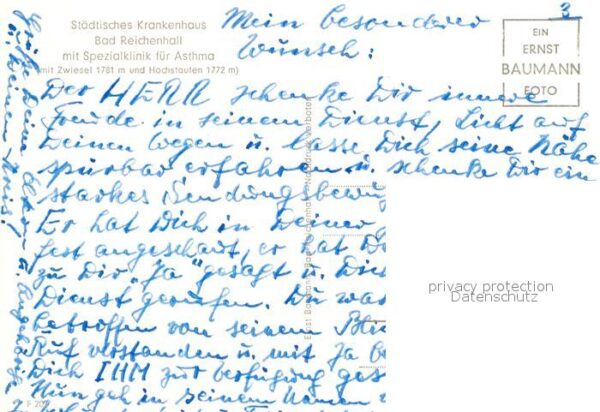 Städtisches Krankenhaus
Bad Reichenhall
mit Spezialklinik für Asthma
(mit Zwiesel 1781 m und Hochstaufen 1772 m)
3
EIN
ERNST
BAUMANN
FOTO
Mein besonderer
Wunsch:
Der HERR schenke Dir innere
Freude in seinem Dienst, Licht auf
Deinen Wegen u. lasse Dich seine Nähe
spürbar erfahren u. schenke Dir ein
starkes Sendungsbewuß
Er hat Dich in Deiner
fest angeschaut, er hat
zu Dir "Ja" gesagt u. Dich
Dienst gerufen. Du war
betroffen von seinem Bli
Ruf verstanden u. mit Ja be
Dich IHM zur Verfügung ges
Nun geh in seinem Namen
Grüße Deine Eltern u. Angehörige
privacy protection
Datenschutz
Ernst Baumann, Bad Reichenhall
F 20